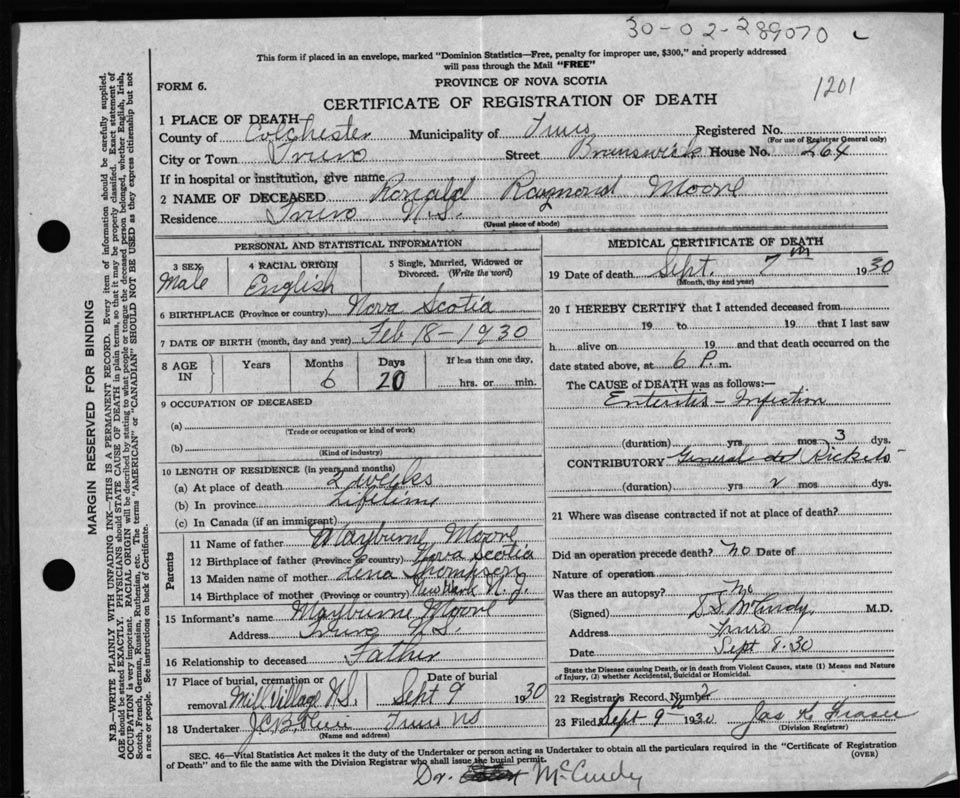 30-02-289070
This form if placed in an envelope, marked "Dominion Statistics—Free, penalty for improper use, $300," and properly addressed
will pass through the Mail "FREE"
PROVINCE OF NOVA SCOTIA
1201
FORM 6.
CERTIFICATE OF REGISTRATION OF DEATH
1 PLACE OF DEATH
County of Colchester Municipality of Truro Registered No.
(For use of Registrar General only)
City or Town Truro Street Brunswick House No. 264
If in hospital or institution, give name
2 NAME OF DECEASED Ronald Raymond Moore
Residence Truro N.S.
(Usual place of abode)
PERSONAL AND STATISTICAL INFORMATION
3 SEX 4 RACIAL ORIGIN 5 Single, Married, Widowed or
Divorced. (Write the word)
Male English
6 BIRTHPLACE (Province or country) Nova Scotia
7 DATE OF BIRTH (month, day and year) Feb 18-1930
8 AGE IN Years Months Days If less than one day,
6 20 hrs. or min.
9 OCCUPATION OF DECEASED
(a)
(Trade or occupation or kind of work)
(b)
(Kind of industry)
10 LENGTH OF RESIDENCE (in years and months)
(a) At place of death 2 weeks
(b) In province Lifetime
(c) In Canada (if an immigrant)
Parents
11 Name of father Mayburne Moore
12 Birthplace of father (Province or country) Nova Scotia
13 Maiden name of mother Lena Thompson
14 Birthplace of mother (Province or country) N. J.
15 Informant's name Mayburne Moore
Address Truro N.S.
16 Relationship to deceased Father
17 Place of burial, cremation or removal Date of burial
Mill Village N.S. Sept 9 1930
18 Undertaker Truro NS
(Name and address)
MEDICAL CERTIFICATE OF DEATH
19 Date of death Sept. 7th 1930
(Month, day and year)
20 I HEREBY CERTIFY that I attended deceased from
19 to 19 that I last saw
h alive on 19 and that death occurred on the
date stated above, at 6 P. m.
The CAUSE of DEATH was as follows:—
Enteritis - Infection
(duration) yrs mos 3 dys.
CONTRIBUTORY General Rickets
(duration) yrs 2 mos dys.
21 Where was disease contracted if not at place of death?
Did an operation precede death? No Date of
Nature of operation
Was there an autopsy? No
(Signed) McCurdy M.D.
Address Truro
Date Sept 8.30
State the Disease causing Death, or in death from Violent Causes, state (1) Means and Nature
of Injury, (2) whether Accidental, Suicidal or Homicidal.
22 Registrar's Record Number 2
23 Filed Sept 9 1930 Jas K Fraser
(Division Registrar)
SEC. 46—Vital Statistics Act makes it the duty of the Undertaker or person acting as Undertaker to obtain all the particulars required in the "Certificate of Registration
of Death" and to file the same with the Division Registrar who shall issue the burial permit.
(OVER)
Dr. McCurdy
MARGIN RESERVED FOR BINDING
N.B.—WRITE PLAINLY WITH UNFADING INK—THIS IS A PERMANENT RECORD. Every item of information should be carefully supplied.
AGE should be stated EXACTLY. PHYSICIANS should STATE CAUSE OF DEATH in plain terms, so that it may be properly classified. Exact statement of
OCCUPATION is very important. RACIAL ORIGIN will be described by stating to what people or tongue the deceased person belonged, whether English, Irish,
Scotch, French, German, Russian, Ruthenian, etc. The terms "AMERICAN" or "CANADIAN" SHOULD NOT BE USED as they express citizenship but not
a race or people. See instructions on back of Certificate.